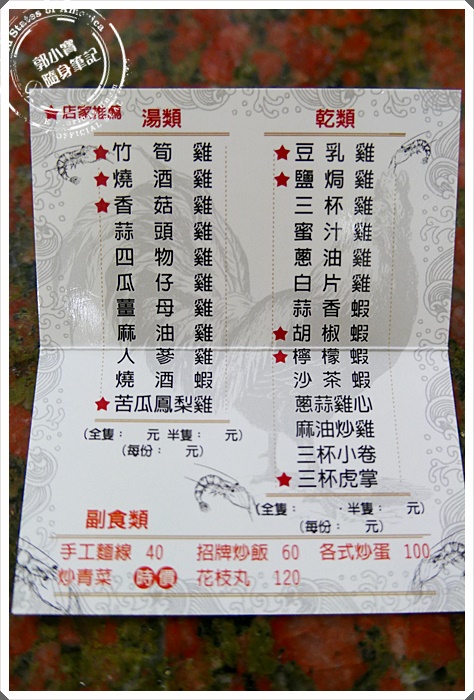 States of America
郭小寶
隨身筆記
OFFICIAL
★店家推薦
湯類
★竹筍雞
★燒酒雞
★香菇雞
蒜頭雞
四物雞
瓜仔雞
薑母雞
麻油雞
人蔘雞
燒酒蝦
★苦瓜鳳梨雞
(全隻： 元 半隻： 元)
(每份： 元)
乾類
★豆乳雞
★鹽焗雞
三杯雞
蜜汁雞
蔥油雞
白片雞
蒜香蝦
★胡椒蝦
★檸檬蝦
沙茶蝦
蔥蒜雞心
麻油炒雞
三杯小卷
★三杯虎掌
(全隻： ‧半隻： 元)
(每份： 元)
副食類
手工麵線 40 招牌炒飯 60 各式炒蛋 100
炒青菜 時價 花枝丸 120